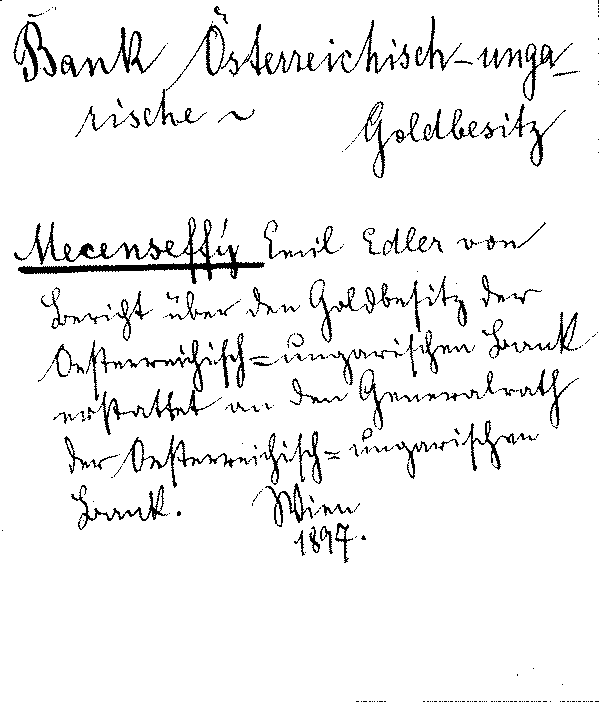 Bank Österreichisch-unga-
rische ~ Goldbesitz
Mecenseffy Emil Edler von
Bericht über den Goldbesitz der
Oesterreichisch=ungarischen Bank
erstattet an den Generalrath
der Oesterreichisch=ungarischen
Bank. Wien
1897.